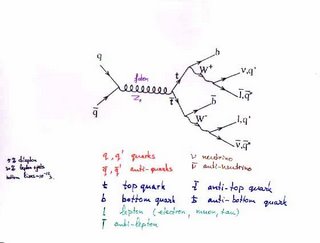 q
q̄
t
t̄
b
W⁺
ν, q'
l̄, q̄'
b̄
W⁻
l, q'
ν̄, q̄'
q, q' quarks
q̄, q̄' anti-quarks
ν neutrino
ν̄ anti-neutrino
t top quark
t̄ anti-top quark
b bottom quark
b̄ anti-bottom quark
l lepton (electron, muon, tau)
l̄ anti-lepton